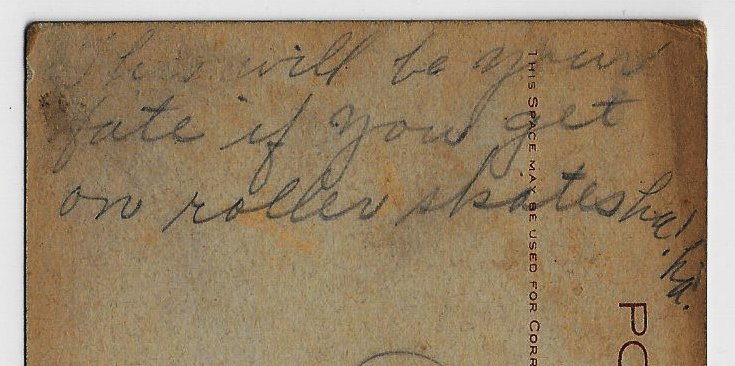 This will be your
fate if you get
on roller skates ha! ha!
THIS SPACE MAY BE USED FOR CORR
PO